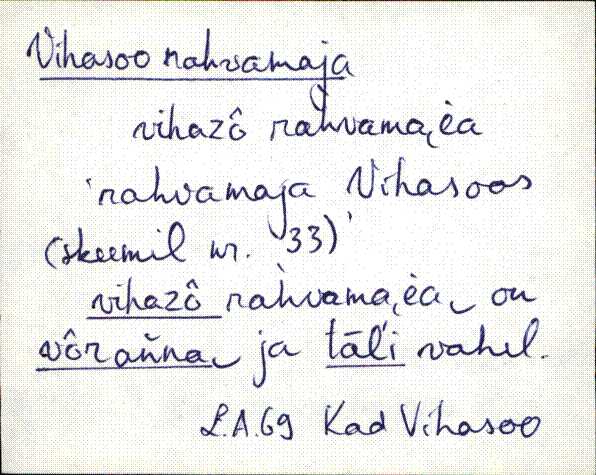 Vihasoo rahvamaja
vihazô rahvama͔èa
'rahvamaja Vihasoos
(skeemil nr. 33)'
vihazô rahvama͔èa on
vôraňna ja tāľi vahel.
L.A.69 Kad Vihasoo